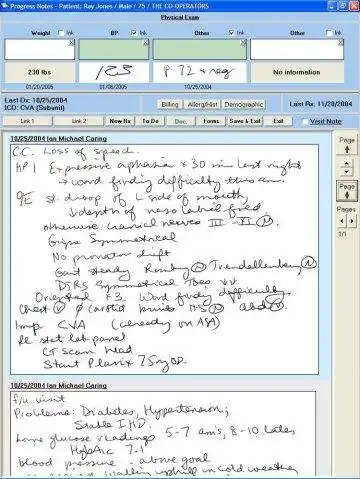 Progress Notes - Patient: Ray Jones / Male / 75 / THE CO-OPERATORS
Physical Exam
Weight Ink BP Ink Other Ink Other Ink
230 lbs 125 P. 72 + reg No information
01/20/2005 01/06/2005 10/25/2004
Last Dx: 10/25/2004
ICD: CVA (Subunit)
Billing Allerg/Hist Demographic
Last Rx: 11/20/2004
Link 1 Link 2 New Rx To Do Doc. Forms Save & Exit Exit Visit Note
10/25/2004 Ian Michael Caring
C.C. Loss of speed.
HPI Expressive aphasia x 30 min last night
→ word finding difficulty this am.
O/E st. droop of L side of mouth
↓ depth of nasolabial fold
otherwise cranial nerves III - XI (N)
Grips Symmetrical
No pronator drift
Gait steady Romberg (N) Trendellenberg (N)
DTRS Symmetrical Toes ↓↓
Oriented x3. Word finding difficulty
Chest (N) 0 carotid bruits HS (N) abd (N)
Imp CVA (already on ASA)
Pl stat lab panel
CT scan head
Start Plavix 75mg OD.
Page
Page
Pages
1/1
10/25/2004 Ian Michael Caring
f/u visit
Problems: Diabetes, Hypertension,
Stable IHD.
home glucose readings 5-7 am's, 8-10 later
HgbA1c 7.1
blood pressure - above goal
walking uphill in cold weather